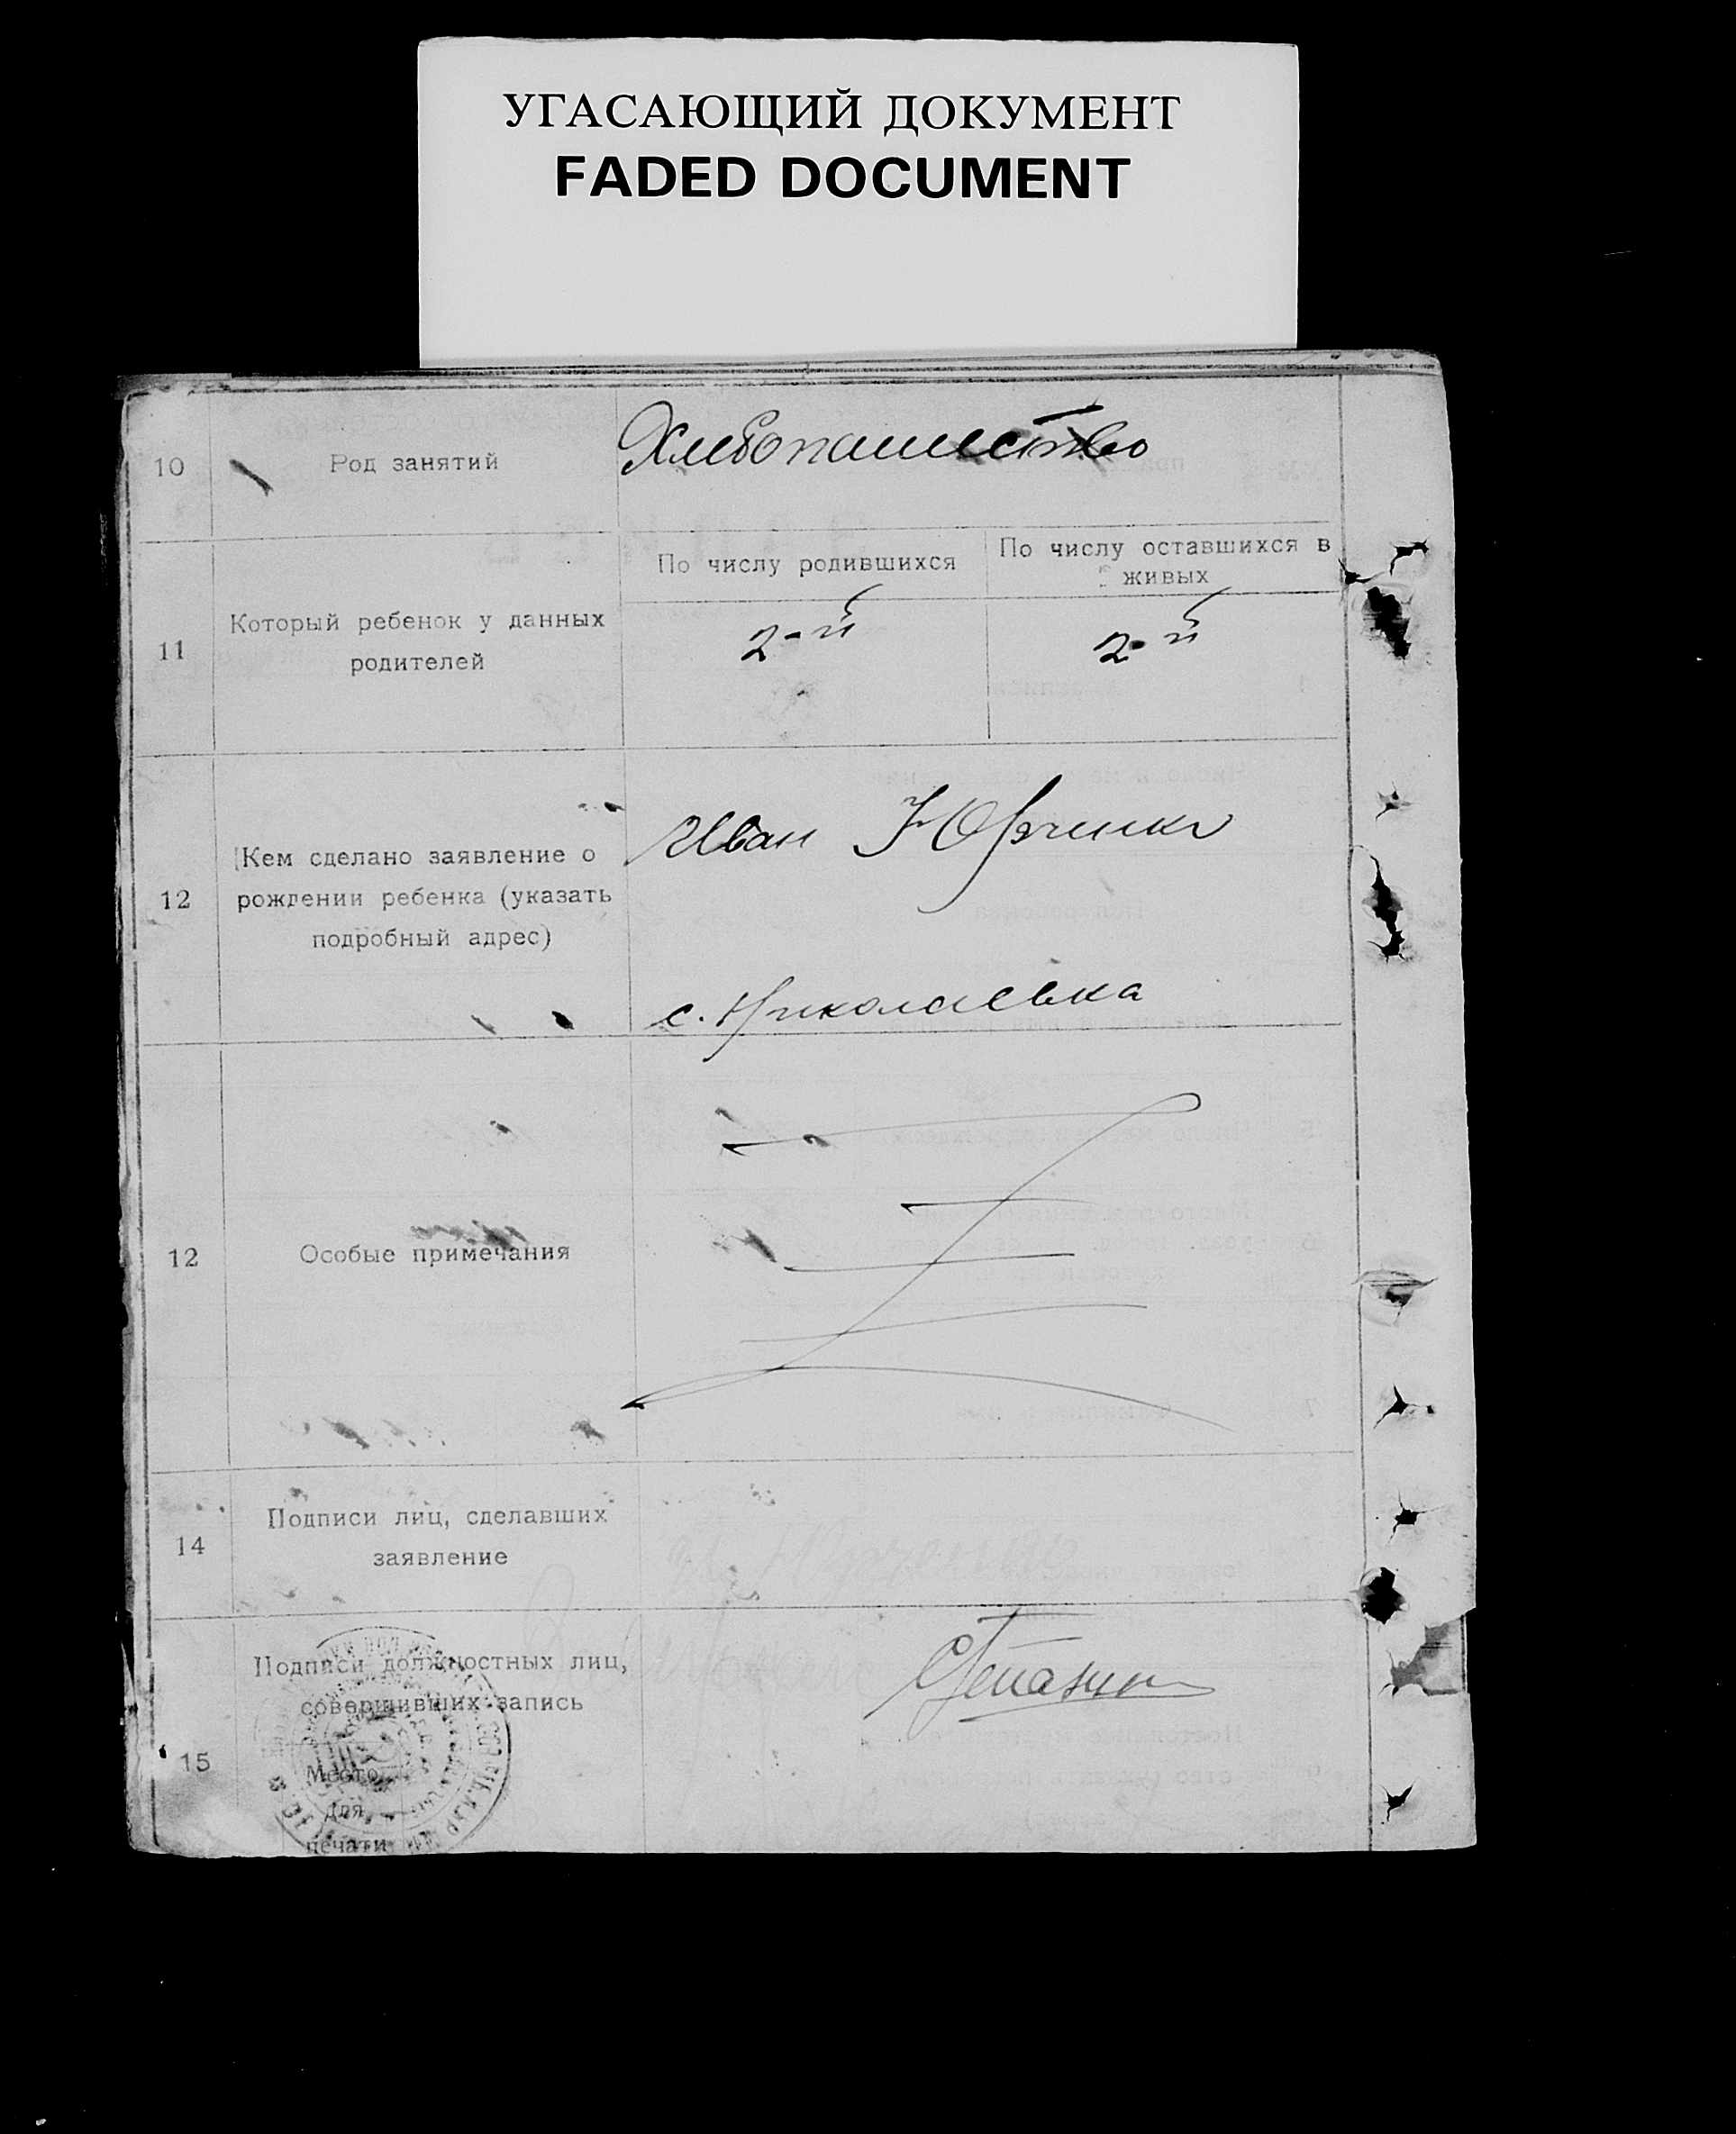 УГАСАЮЩИЙ ДОКУМЕНТ
FADED DOCUMENT
10 Род занятий Хлебопашество
По числу родившихся
По числу оставшихся в
живых
11 Который ребенок у данных
родителей
2-й 2-й
12 Кем сделано заявление о
рождении ребенка (указать
подробный адрес)
Иван Юрченко
с. Николаевка
12 Особые примечания
14 Подписи лиц, сделавших
заявление
15 Подписи должностных лиц,
совершивших запись
Место
для
печати